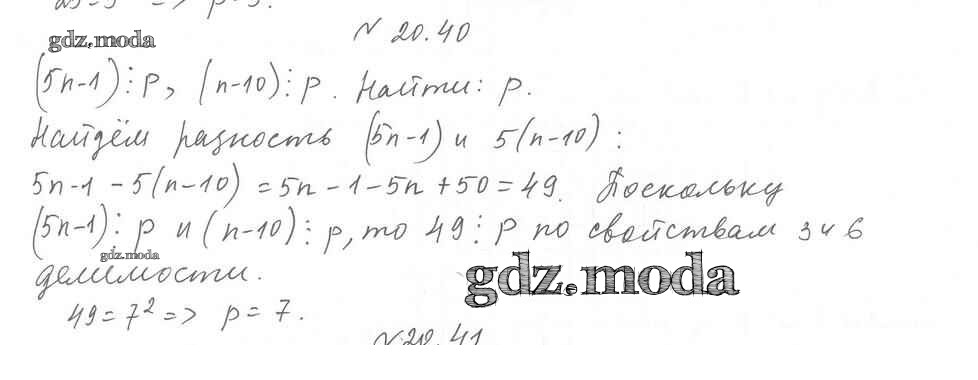 № 20.40
gdz.moda
(5n-1)⋮p, (n-10)⋮p. Найти: p.
Найдём разность (5n-1) и 5(n-10):
5n-1-5(n-10)=5n-1-5n+50=49. Поскольку
(5n-1)⋮p и (n-10)⋮p, то 49⋮p по свойствам 3 и 6
gdz.moda
делимости.
gdz.moda
49=7² => p=7.
№20.41